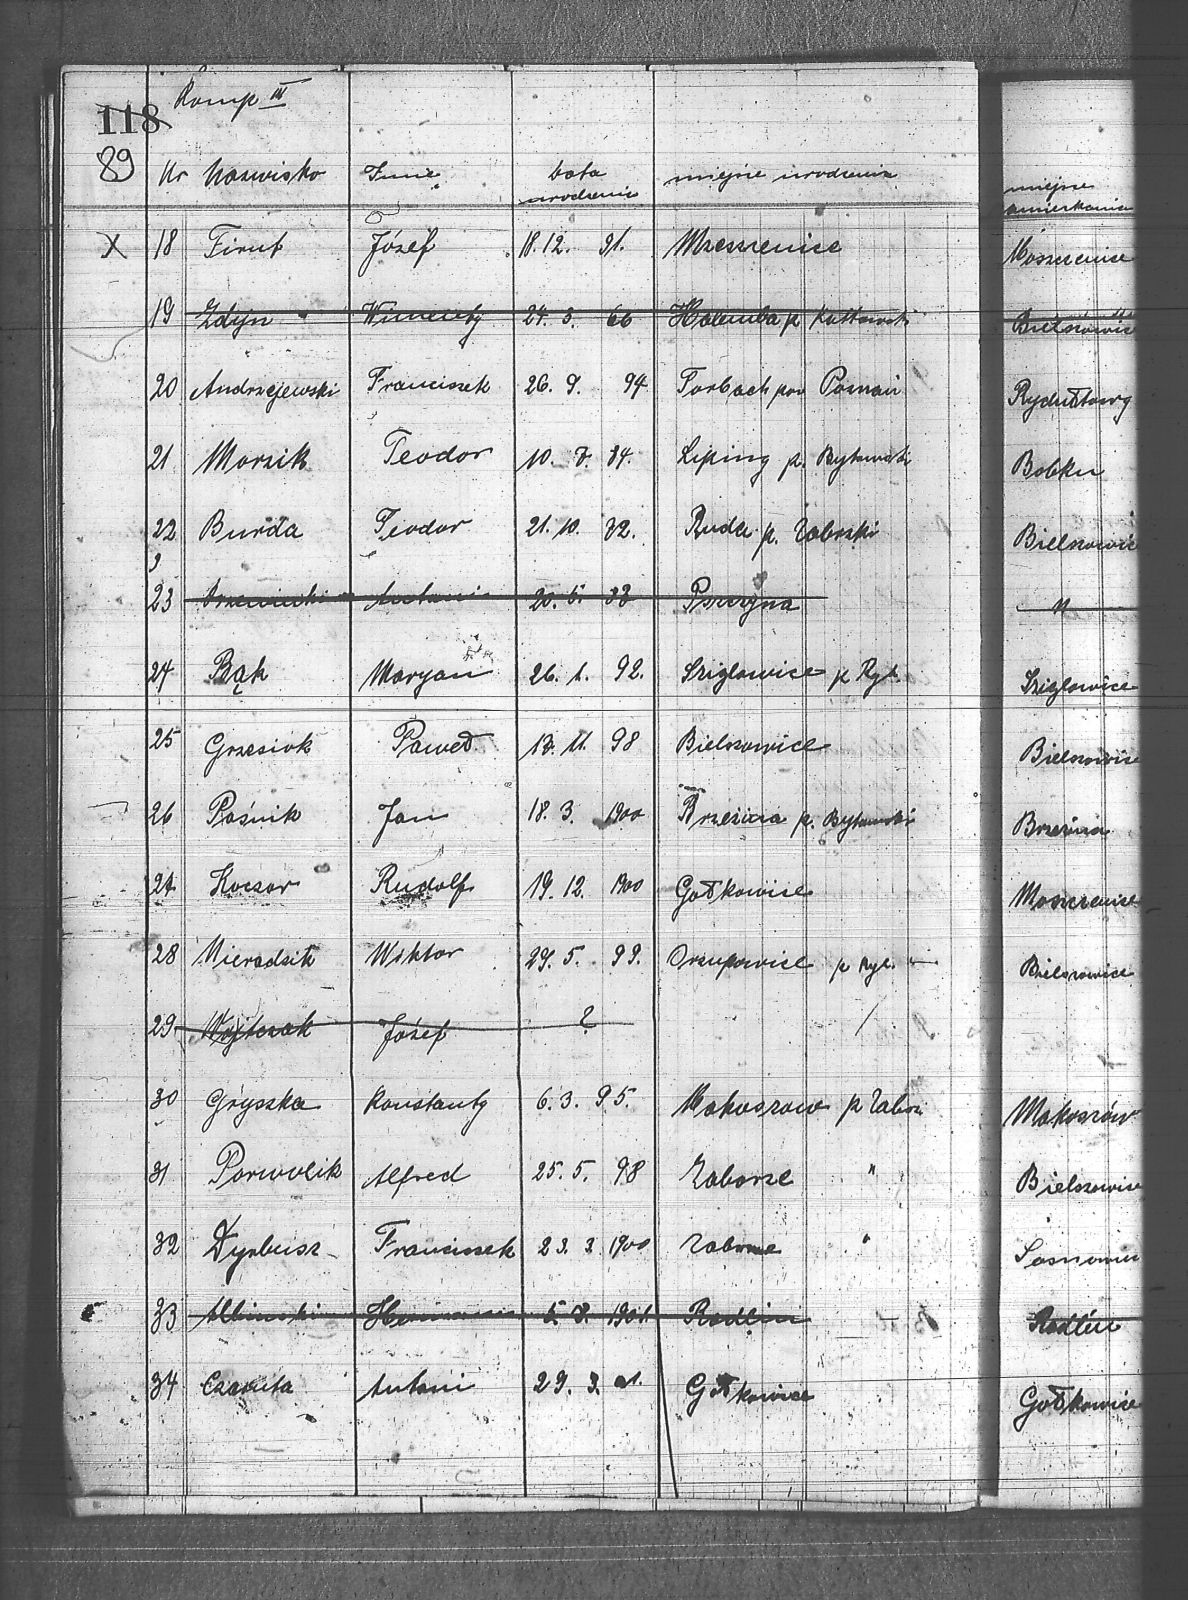 118 Komp III
89 Nr Nazwisko Imie data urodzenia miejsce urodzenia miejsce zamieszkania
X 18 Firut Józef 18. 12. 91. Mszeszenice Moszczenice
19 Zdyn Wincenty 24. 3. 66 Halemba p. Kattowski Bielszowice
20 Andrzejewski Franciszek 26. 9. 94. Torbach pow Poznań Rydułtowy
21 Morzik Teodor 10. 7. 84. p. Bytomski Bobku
22 Burda Teodor 21. 10. 82. Ruda p. Zabrski Bielszowice
23 Antoni 20. 5. 33 Pszczyna "
24 Bąk Maryan 26. 1. 92. Sziglowice p Ryb. Sziglowice
25 Grzesiok Paweł 13. 11. 98 Bielszowice Bielszowice
26 Pośnik Jan 18. 3. 1900 Brzezina p. Bytomski Brzezina
27 Koczor Rudolf 19. 12. 1900 Gołkowice Moszczenice
28 Nieradzik Wiktor 29. 5. 99. Orzupowice p Ryb. Bielszowice
29 Wojtczak Józef ? /
30 Gryszka Konstanty 6. 3. 95. Makoszow p Zabrz Makoszów
31 Porwolik Alfred 25. 5. 98 Zaborze " Bielszowice
32 Dyrbusz Franciszek 23. 3 1900 Zaborze " Sosnowiec
33 Albinski 5. 8. 1901. Radlin Radlin
34 Czavita Antoni 29. 3. 01. Gołkowice Gołkowice